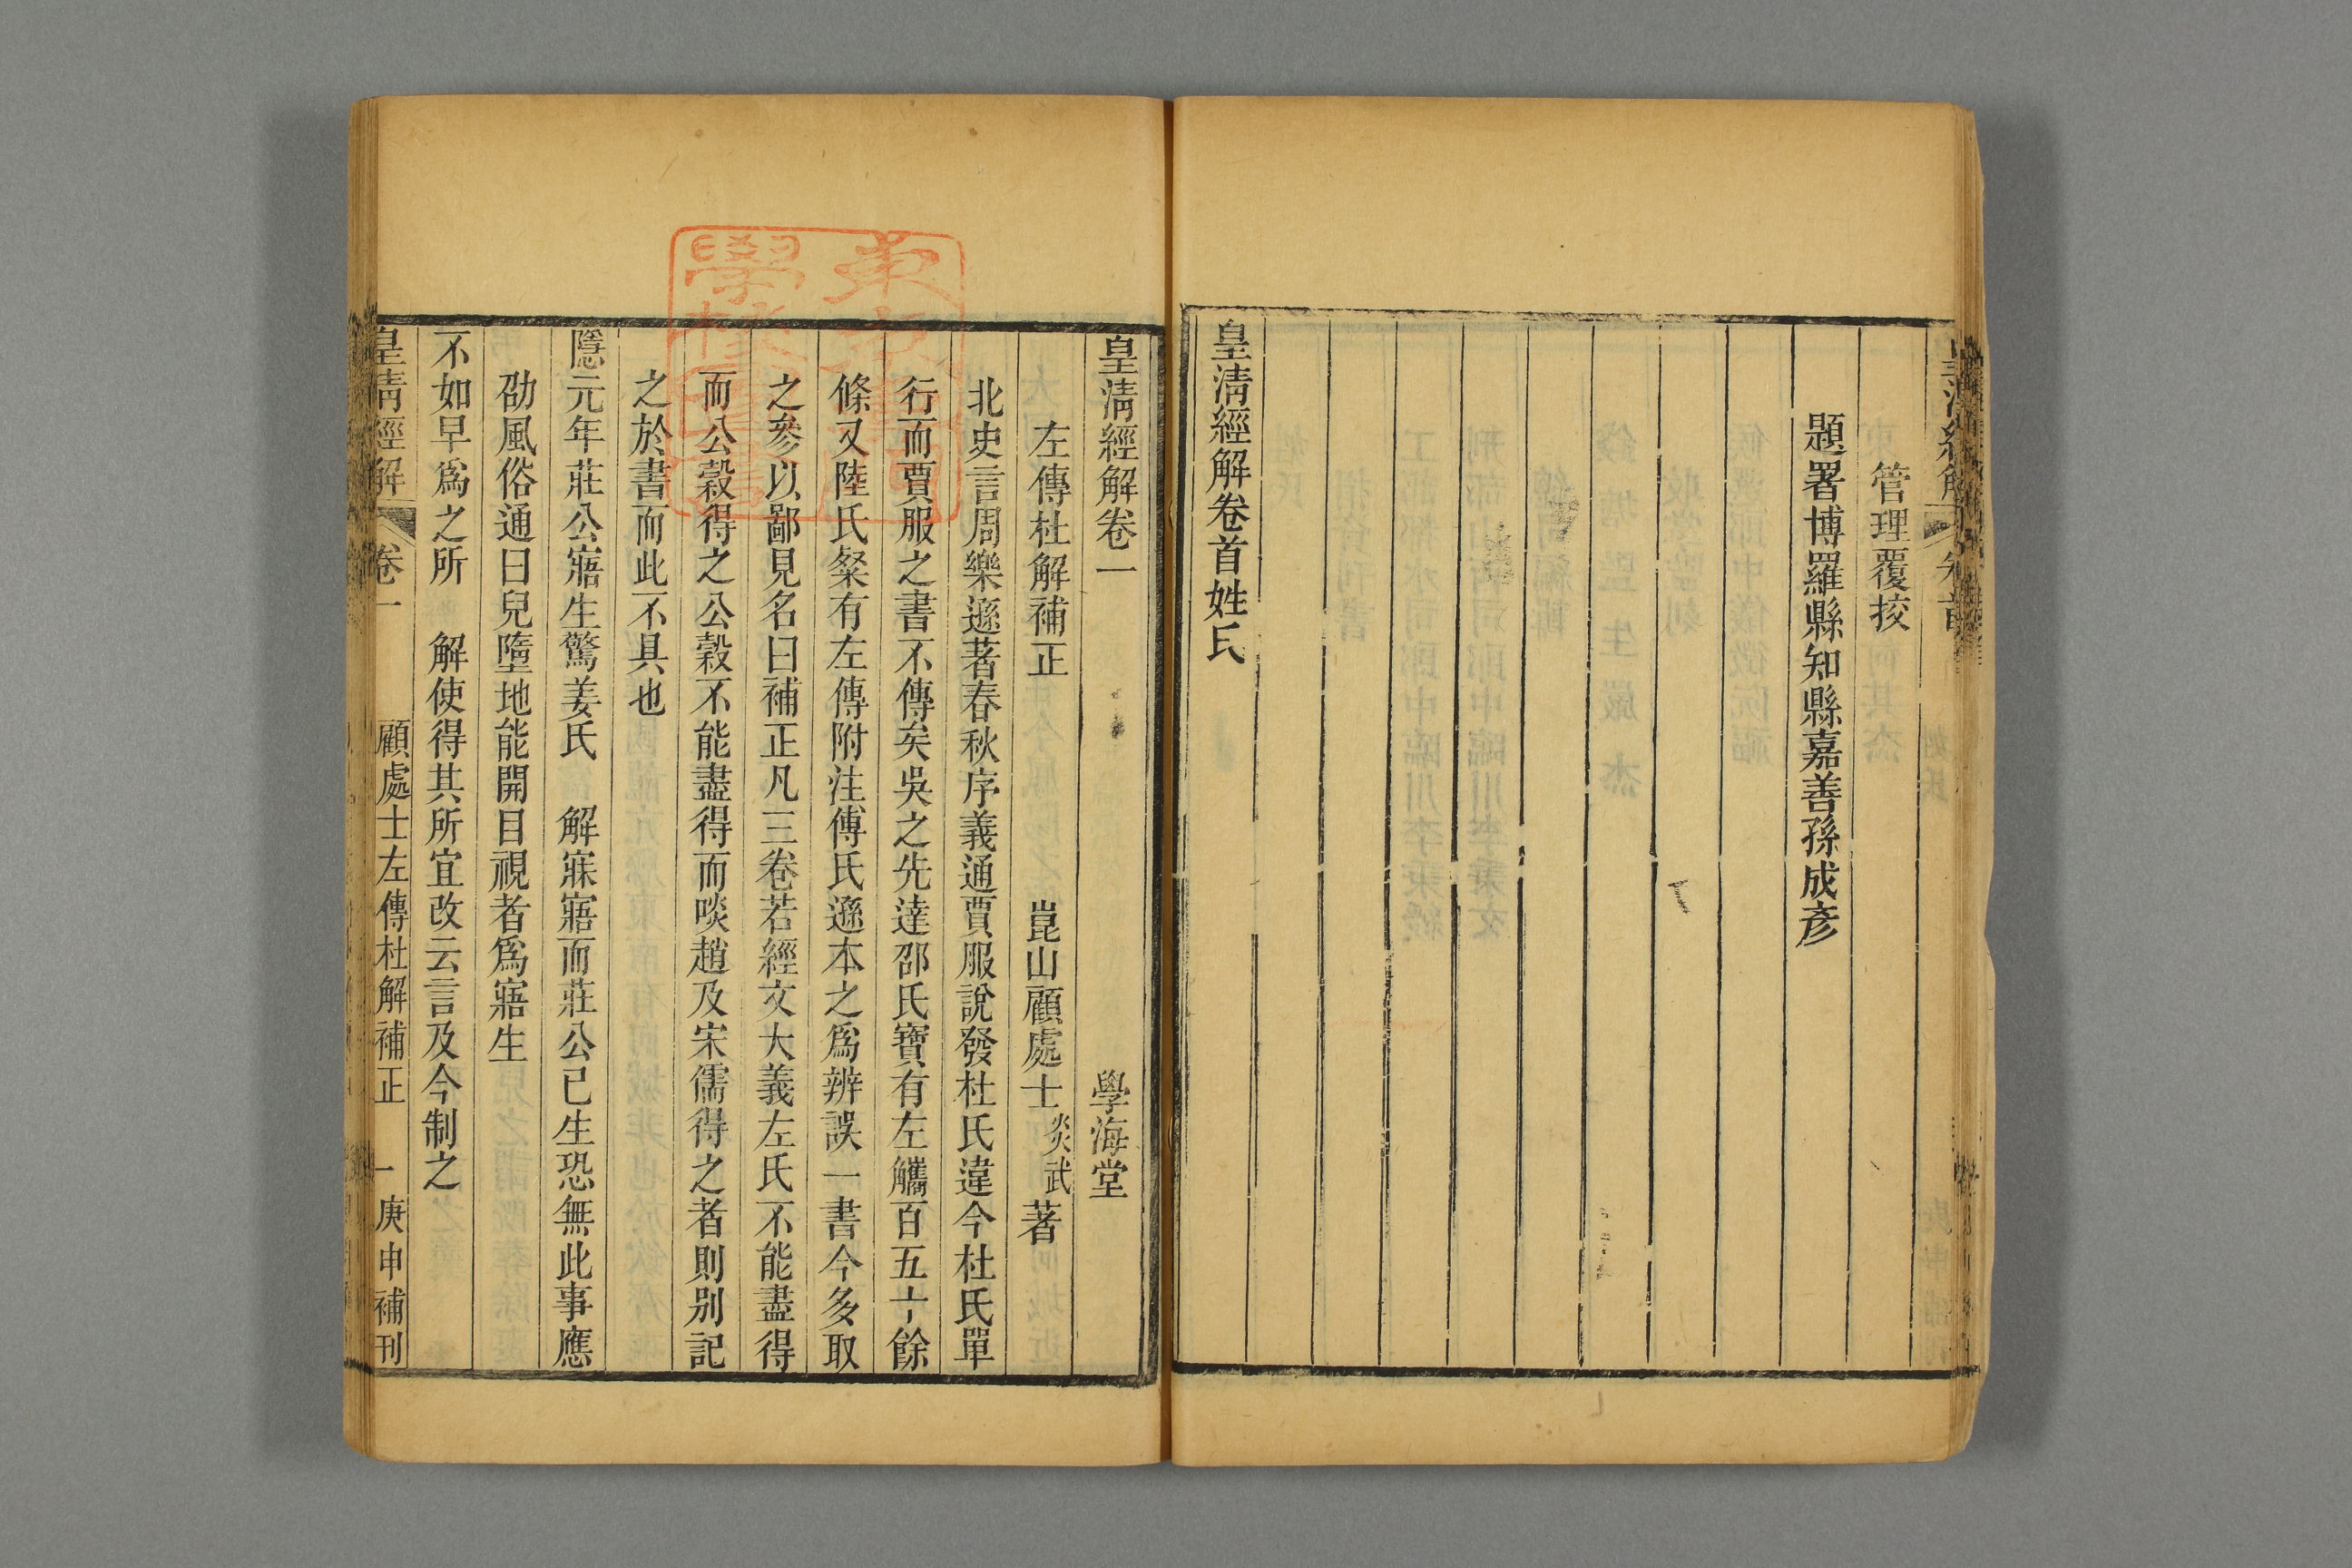 皇清經解 卷首
管理覆挍
題署博羅縣知縣嘉善孫成彥
皇淸經解卷首姓氏
皇淸經解卷一 學海堂
左傳杜解補正 崑山顧處士炎武著
北史言周樂遜著春秋序義通賈服說發杜氏違今杜氏單
行而賈服之書不傳矣吳之先達邵氏寶有左觿百五十餘
條又陸氏粲有左傳附注傅氏遜本之爲辨誤一書今多取
之參以鄙見名曰補正凡三卷若經文大義左氏不能盡得
而公穀得之公穀不能盡得而啖趙及宋儒得之者則別記
之於書而此不具也
隱元年莊公寤生驚姜氏 解寐寤而莊公已生恐無此事應
劭風俗通曰兒墮地能開目視者爲寤生
不如早爲之所 解使得其所宜改云言及今制之
皇淸經解 卷一 顧處士左傳杜解補正 一 庚申補刊